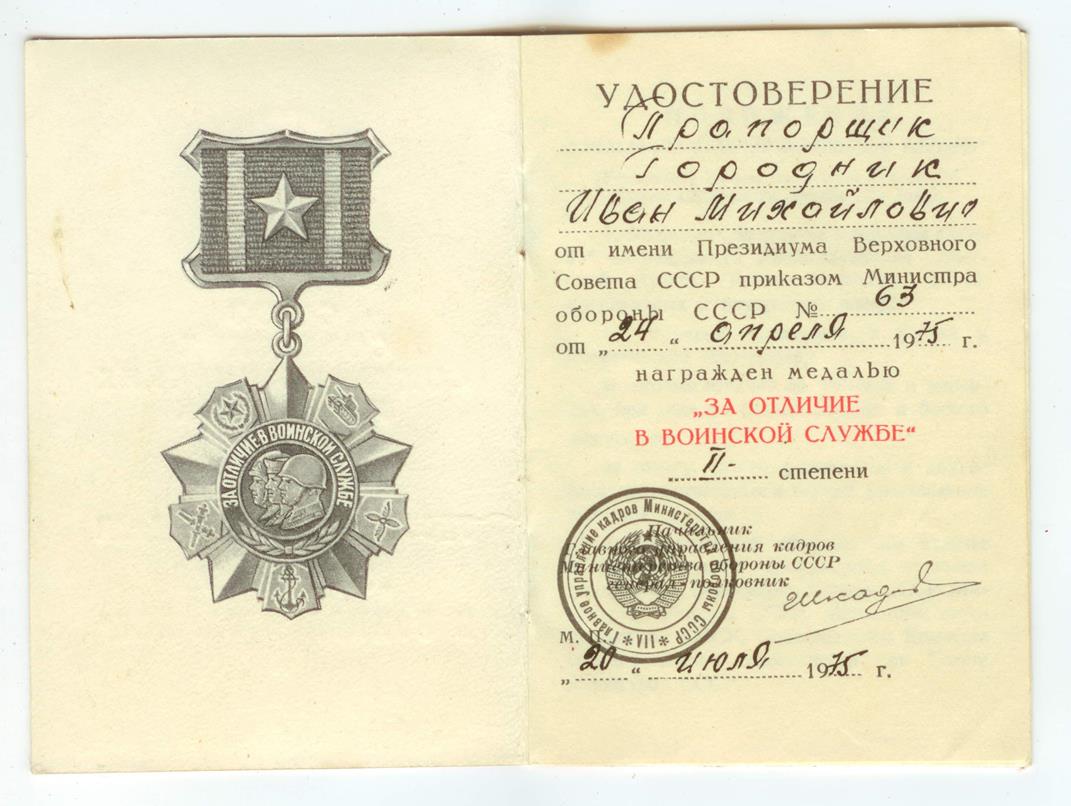 ЗА ОТЛИЧИЕ В ВОИНСКОЙ СЛУЖБЕ
УДОСТОВЕРЕНИЕ
Прапорщик
Городник
Иван Михайлович
от имени Президиума Верховного
Совета СССР приказом Министра
обороны СССР № 63
от „24“ апреля 1975 г.
награжден медалью
„ЗА ОТЛИЧИЕ
В ВОИНСКОЙ СЛУЖБЕ“
II- степени
Начальник
Главного управления кадров
Министерства обороны СССР
генерал-полковник
Главное управление кадров Министерства обороны СССР * VII *
М. П.
„20“ июля 1975 г.